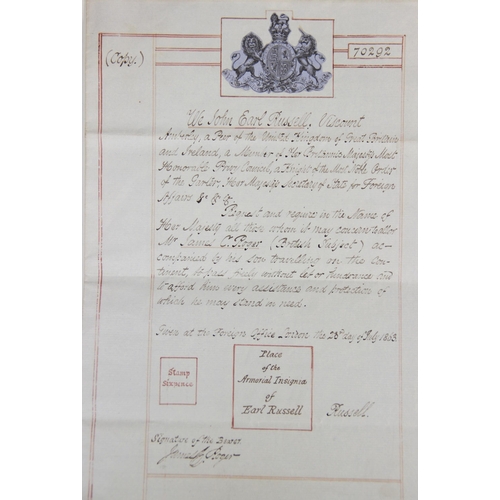 (Copy.)
70292
We John Earl Russell, Viscount
Amberly, a Peer of the United Kingdom of Great Britain
and Ireland, a Member of Her Britannic Majesty's Most
Honorable Privy Council, a Knight of the Most Noble Order
of the Garter, Her Majesty's Secretary of State for Foreign
Affairs &c &c &c
Request and require in the Name of
Her Majesty all those whom it may concern to allow
Mr James C. Roger (British Subject) ac-
companied by his son travelling on the Con-
tinent, to pass freely without let or hindrance and
to afford him every assistance and protection of
which he may stand in need.
Given at the Foreign Office London the 28th day of July 1863.
Stamp
Sixpence
Place
of the
Armorial Insignia
of
Earl Russell
Russell.
Signature of the Bearer.
James C. Roger